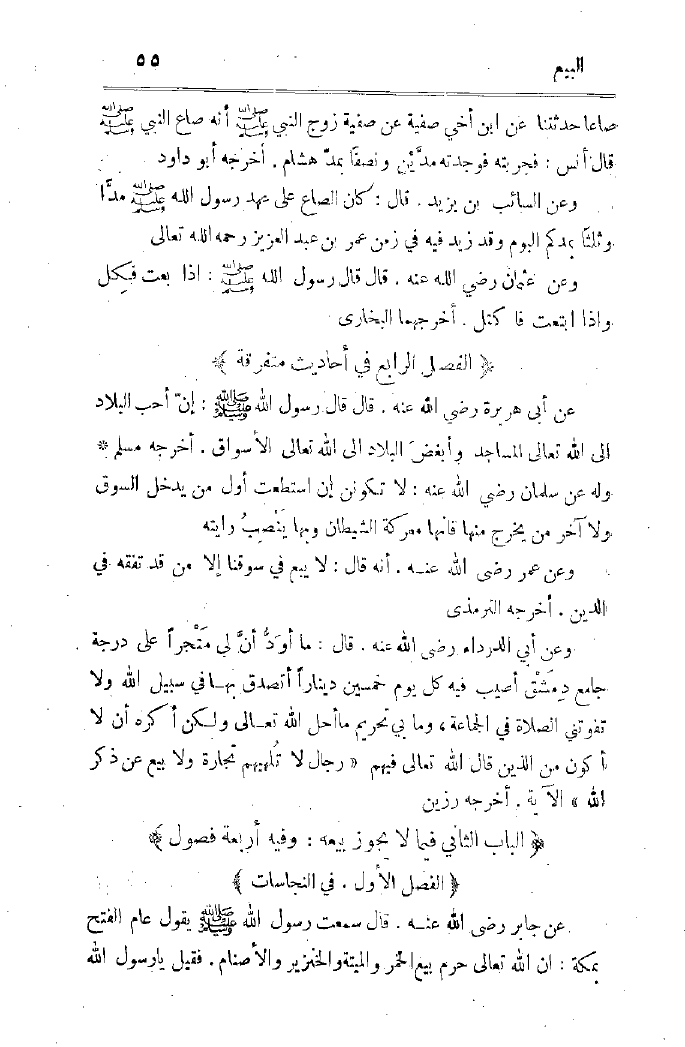 البيع ٥٥
صاعا حدثتنا عن ابن أخي صفية عن صفية زوج النبي ﷺ أنه صاع النبي ﷺ
قال أنس : فجربته فوجدته مدَّين ونصفًا بمدّ هشام . أخرجه أبو داود
وعن السائب بن يزيد . قال : كان الصاع على عهد رسول الله ﷺ مدًّا
وثلثًا بمدكم اليوم وقد زيد فيه في زمن عمر بن عبد العزيز رحمه الله تعالى
وعن عثمان رضي الله عنه . قال قال رسول الله ﷺ : اذا بعت فكل
واذا ابتعت فاكتل . أخرجهما البخارى
﴿ الفصل الرابع في أحاديث متفرقة ﴾
عن أبى هريرة رضى الله عنه . قال قال رسول الله ﷺ : إنّ أحب البلاد
الى الله تعالى المساجد وأبغضَ البلاد الى الله تعالى الأسواق . أخرجه مسلم *
وله عن سلمان رضي الله عنه : لا تكونن إن استطعت أول من يدخل السوق
ولا آخر من يخرج منها فانها معركة الشيطان وبها يَنْصِبُ رايته
وعن عمر رضى الله عنه . أنه قال : لا يبع في سوقنا إلا من قد تفقه في
الدين . أخرجه الترمذى
وعن أبي الدرداء رضى الله عنه . قال : ما أوَدُّ أنَّ لي مَتْجراً على درجة
جامع دِمَشْق أصيب فيه كل يوم خمسين ديناراً أتصدق بها في سبيل الله ولا
تفوتني الصلاة في الجماعة ، وما بي تحريم ماأحل الله تعالى ولكن أكره أن لا
أكون من الذين قال الله تعالى فيهم « رجال لا تُلهيهم تجارة ولا بيع عن ذكر
الله » الآية . أخرجه رزين
﴿ الباب الثاني فيما لا يجوز بيعه : وفيه أربعة فصول ﴾
﴿ الفصل الأول . في النجاسات ﴾
عن جابر رضى الله عنه . قال سمعت رسول الله ﷺ يقول عام الفتح
بمكة : ان الله تعالى حرم بيع الخمر والميتة والخنزير والأصنام . فقيل يارسول الله